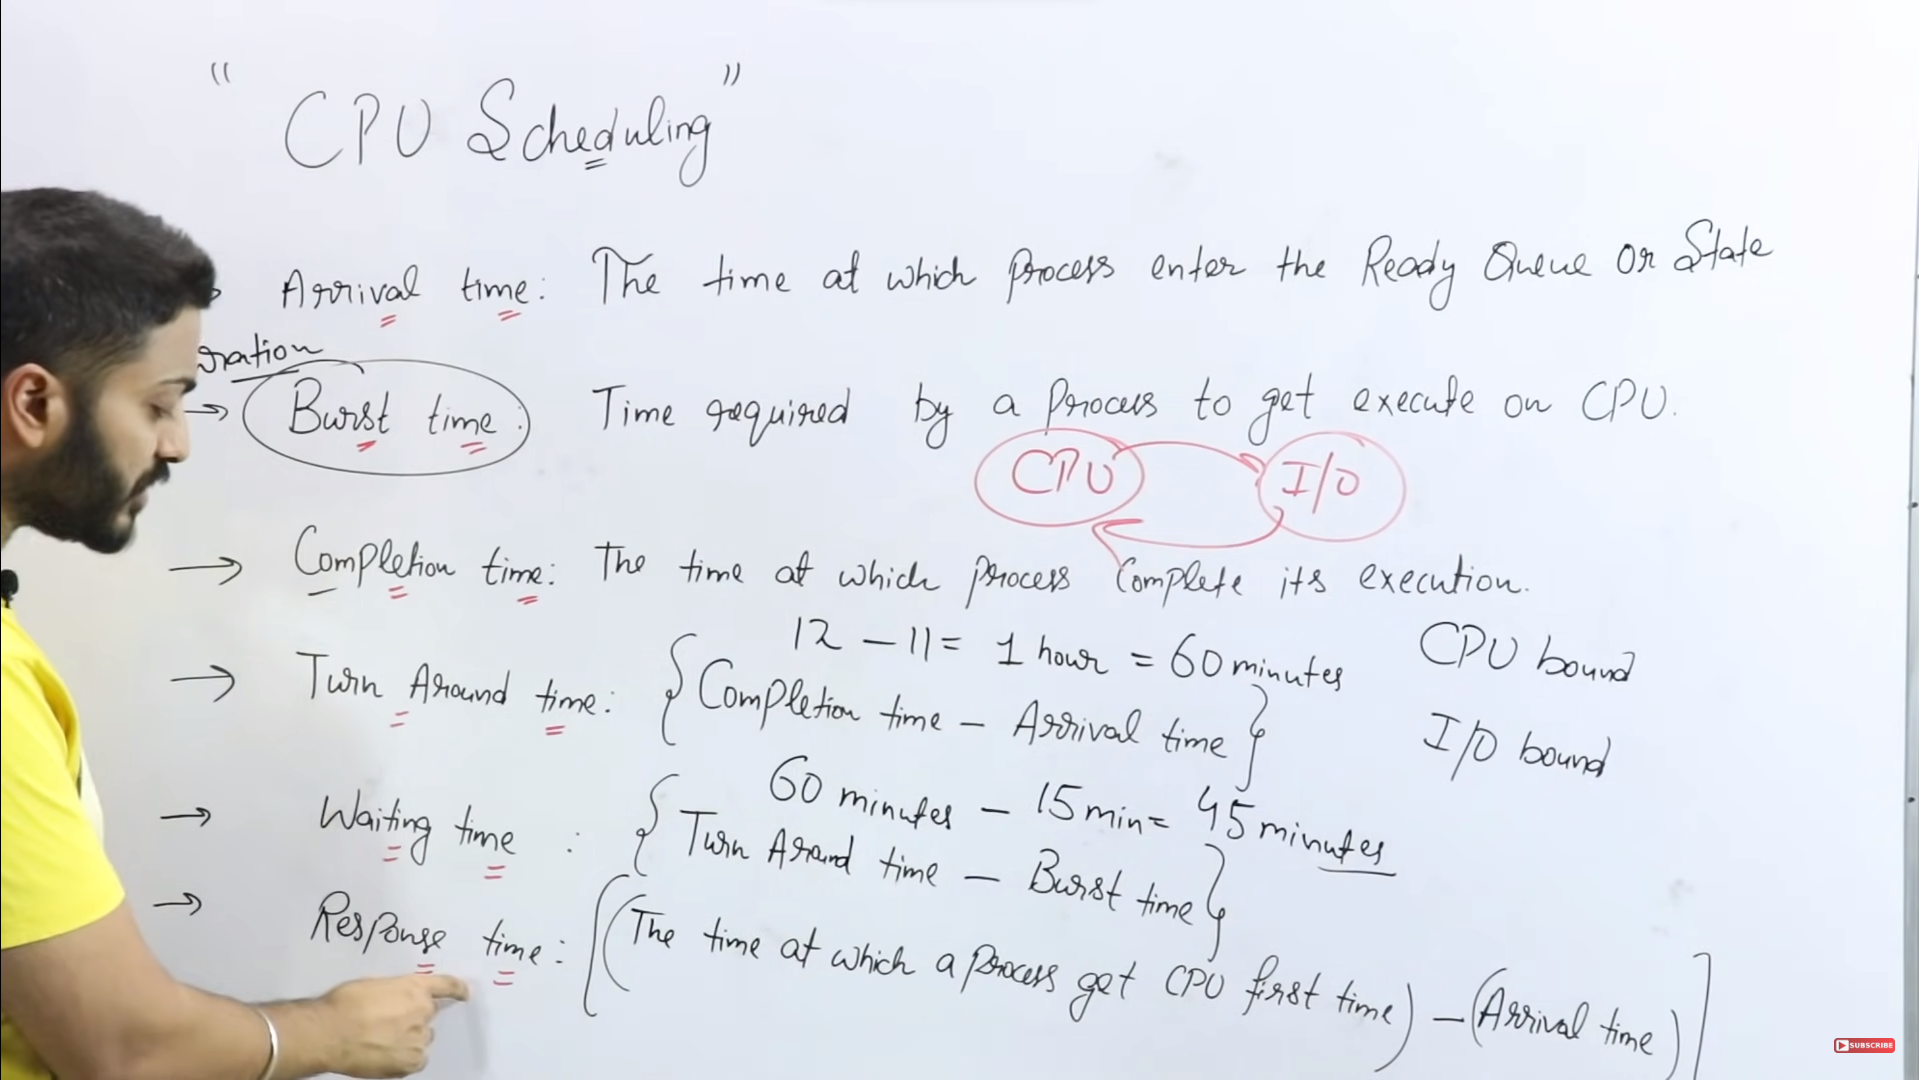 “ CPU Scheduling ”
Arrival time: The time at which process enter the Ready Queue or State
uration
→ Burst time: Time required by a process to get execute on CPU.
CPU I/O
→ Completion time: The time at which process Complete its execution.
12 - 11 = 1 hour = 60 minutes
CPU bound
→ Turn Around time: { Completion time - Arrival time }
I/O bound
60 minutes - 15 min = 45 minutes
→ Waiting time : { Turn Around time - Burst time }
→ Response time: [(The time at which a process get CPU first time) - (Arrival time)]
SUBSCRIBE